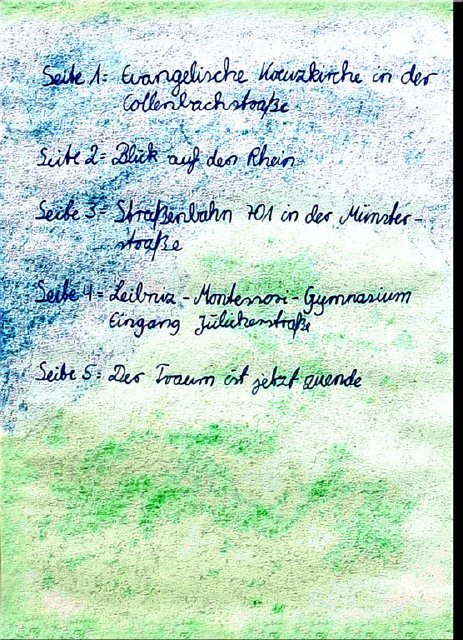 Seite 1= Evangelische Kreuzkirche in der
Collenbachstraße
Seite 2= Blick auf den Rhein
Seite 3= Straßenbahn 701 in der Münster-
straße
Seite 4= Leibniz-Montessori-Gymnasium
Eingang Jülicherstraße
Seite 5= Der Traum ist jetzt zuende